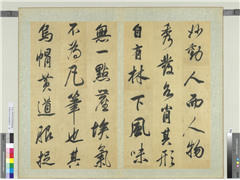 妙動人而人物
秀發各肖其形
自有林下風味
無一點塵埃氣
不為凡筆也其
烏帽黃道服捉